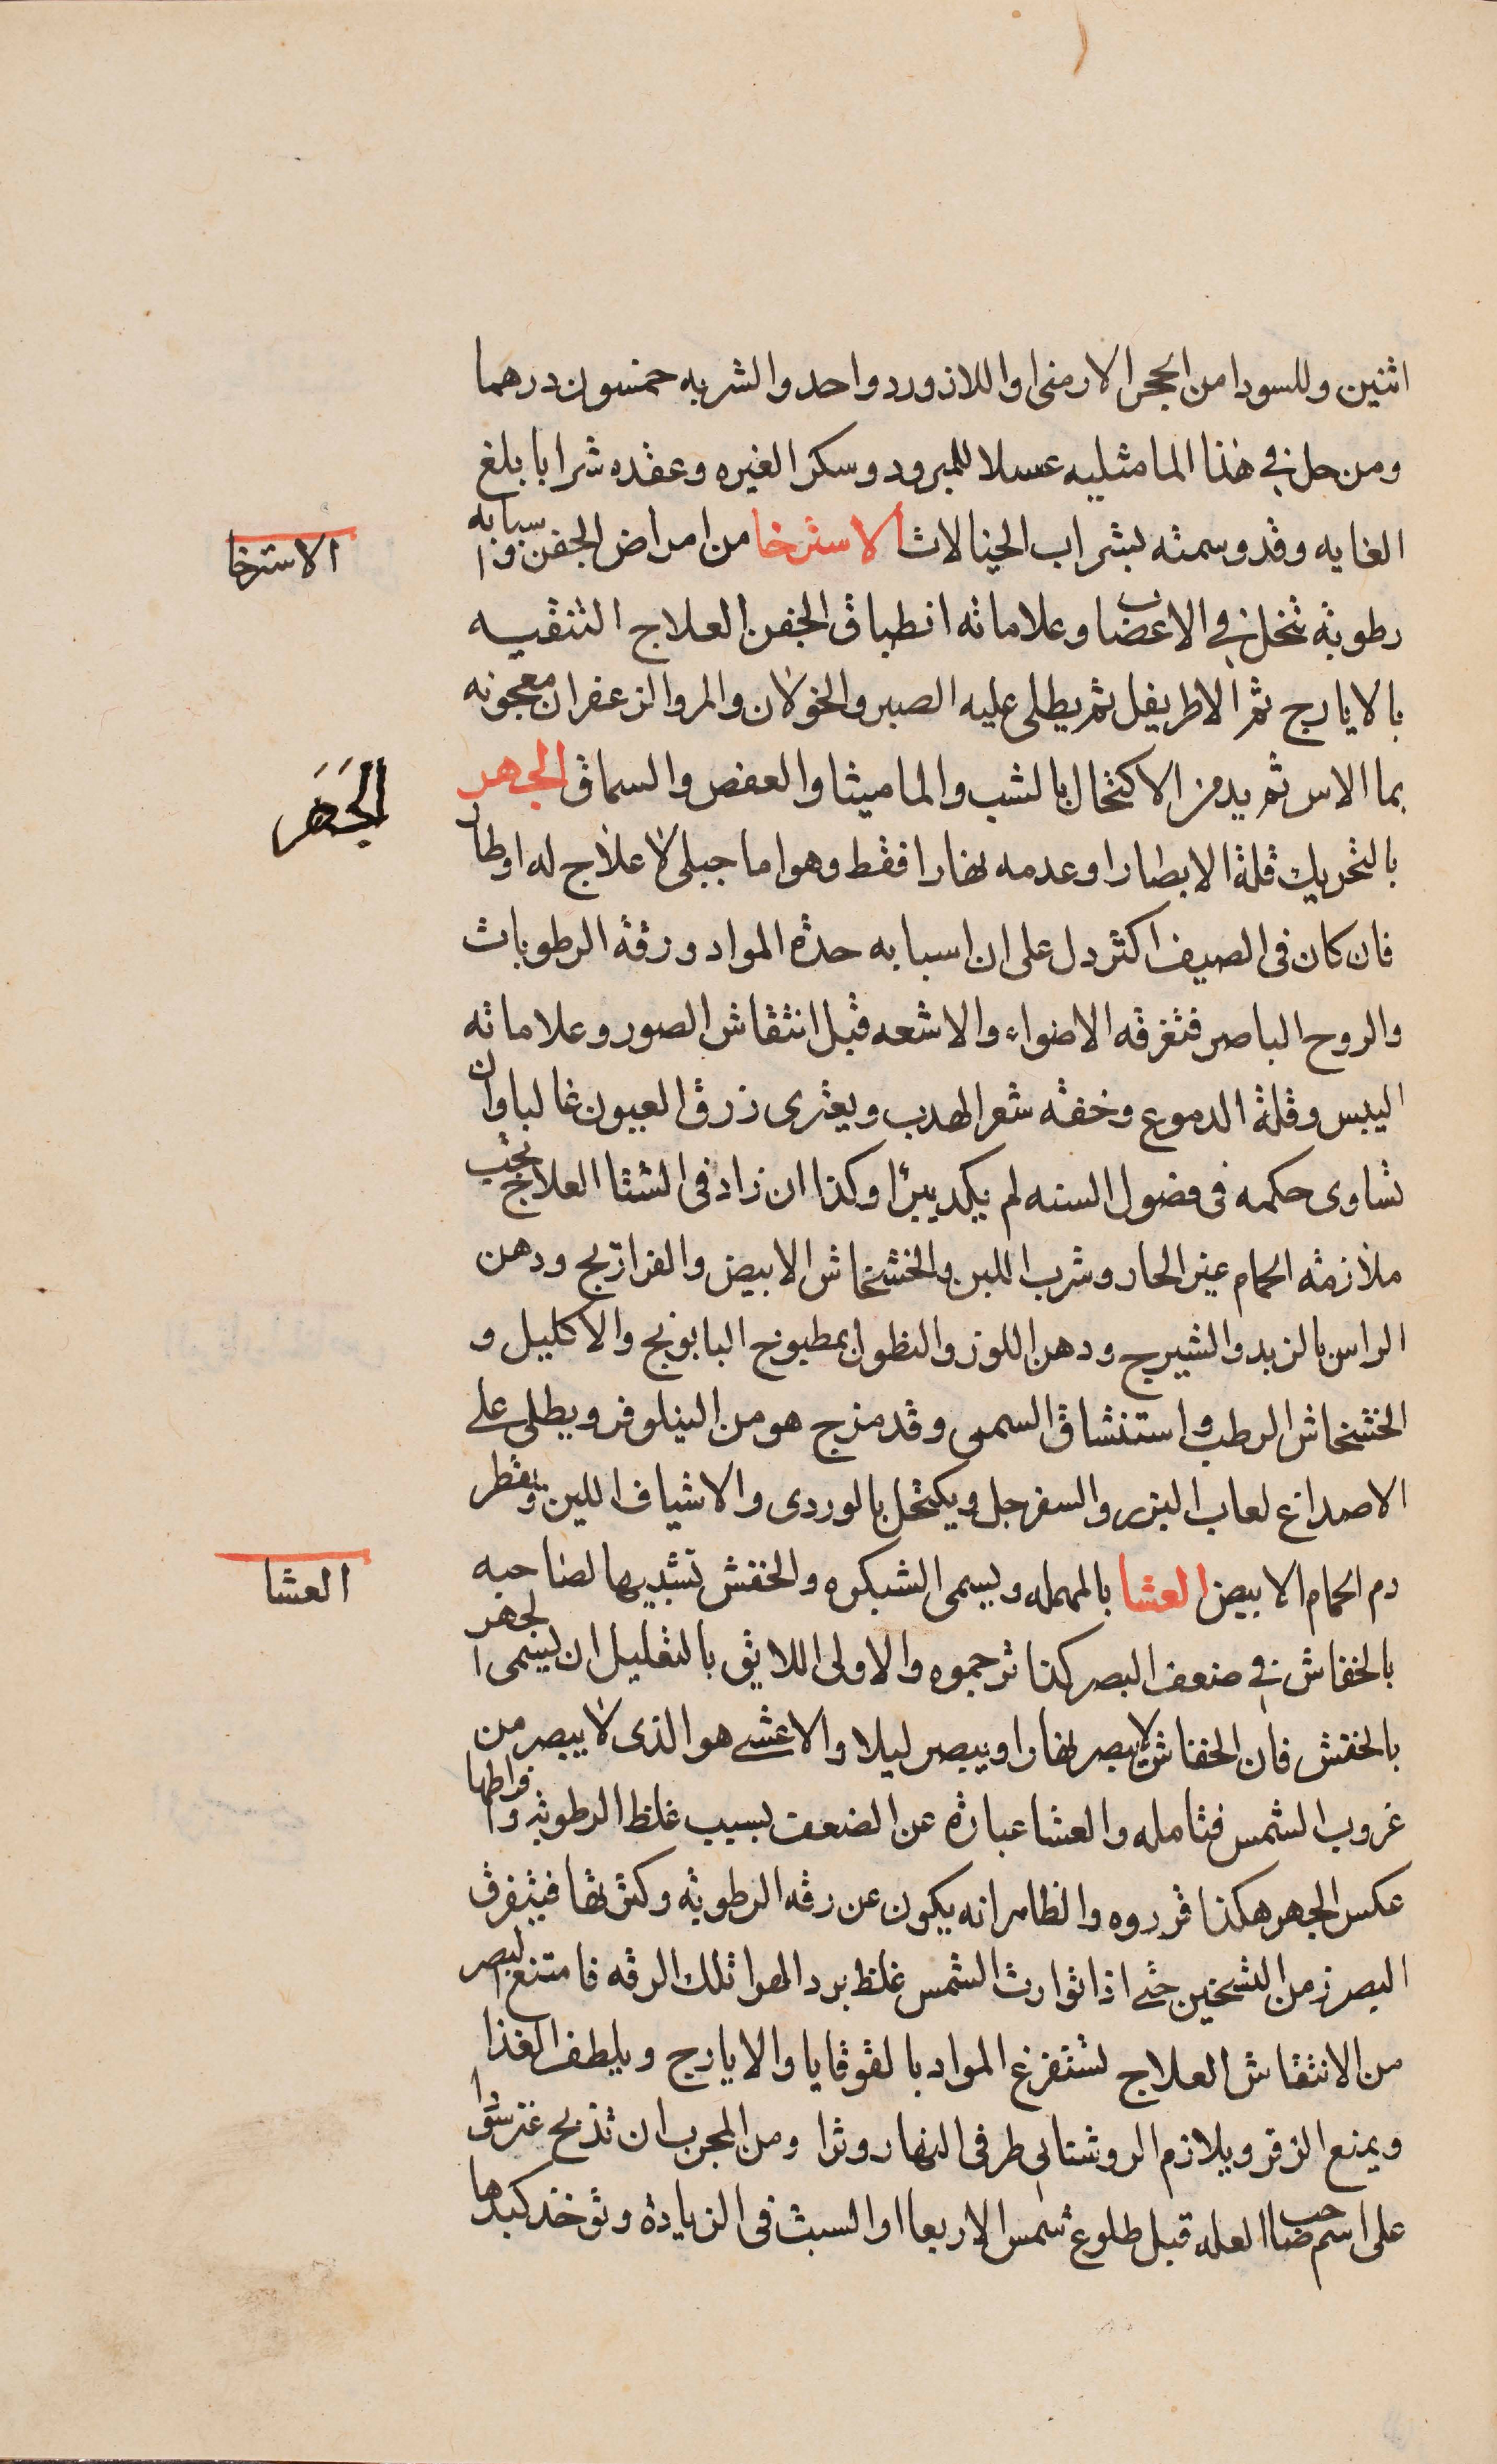 اثنين وللسودا من الحجر الارمنى او اللازورد واحد والشربه خمسون درهما
ومن حل فى هذا الما مثليه عسلا للمبرود وسكر الغيره وعقده شرابا بلغ
الغايه وقد وسمته بشراب الخيالات الاسترخا من امراض الجفن واسبابه
الاسترخا
رطوبة تنحل فى الاعضاب وعلاماته انطباق الجفن العلاج التنقيه
بالايارج ثم الاطريفل ثم يطلى عليه الصبر والخولان والمر والزعفران معجونه
بما الاس ثم يدمن الاكتحال بالشب والماميثا والعفص والسماق الجهر
الجَهَر
بالتحريك قلة الابصار او عدمه نهارا فقط وهو اما جبلى لا علاج له او طار
فان كان فى الصيف اكثر دل على ان اسبابه حدة المواد ورقة الرطوبات
والروح الباصر فتفرقه الاضواء والاشعه قبل انتقاش الصور وعلاماته
اليبس وقلة الدموع وخفة شعر الهدب ويعترى زرق العيون غالبا وان
تساوى حكمه فى فصول السنه لم يكد يبرا وكذا ان زاد فى الشتا العلاج تجب
ملازمة الحمام غير الحار وشرب اللبن والخشخاش الابيض والفراريج ودهن
الراس بالزبد والشيرج ودهن اللوز والنطول بمطبوخ البابونج والاكليل و
الخشخاش الرطب واستنشاق السمن وقد مزج هو من النيلوفر ويطلى على
الاصداغ لعاب البزر والسفرجل ويكتحل بالوردى والاشياف اللين ويقطر
دم الحمام الابيض العشا بالمهمله ويسمى الشبكره والخفش تشبيها لصاحبه
العشا
بالخفاش فى ضعف البصر كذا ترجموه والاولى اللايق بالتقليل ان يسمى الجهر
بالخفش فان الخفاش لا يبصر نهارا ويبصر ليلا والاعشى هو الذى لا يبصر من
غروب الشمس فتامله والعشا عبارة عن الضعف بسبب غلظ الرطوبة وافراطها
عكس الجهر هكذا قرروه والظاهر انه يكون عن رقه الرطوبة وكثرتها فيتفرق
البصر زمن التسخين حتى اذا توارت الشمس غلظ برد الهوا تلك الرقه فامتنع البصر
من الانتقاش العلاج تستفرغ المواد بالقوقايا والايارج ويلطف الغذا
ويمنع الزفر ويلازم الروشنايى طرفى النهار وترا ومن المجرب ان تذبح عنز سودا
على اسم صاحب العله قبل طلوع شمس الاربعا او السبت فى الزيادة وتوخذ كبدها